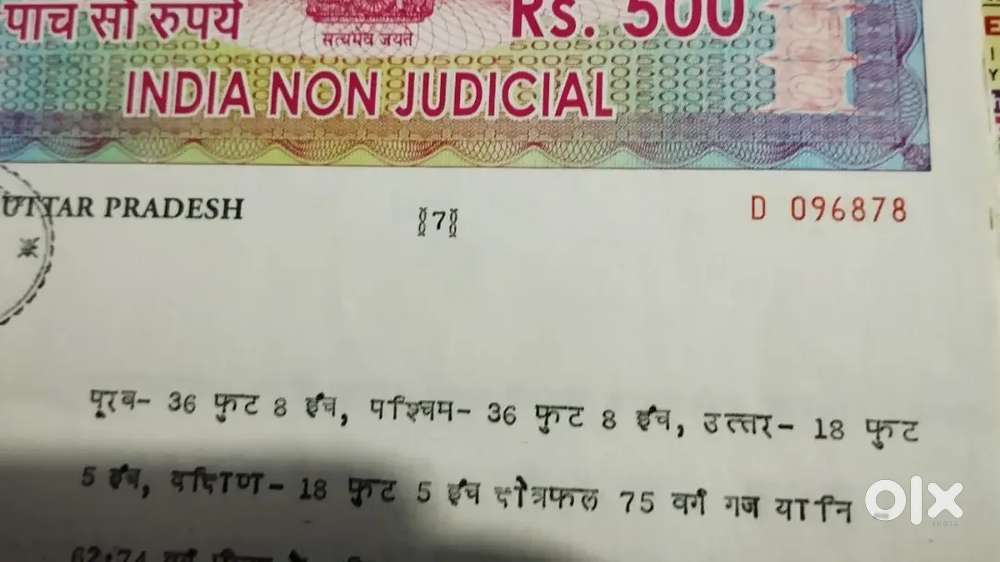 पाच सौ रुपये
सत्यमेव जयते
Rs. 500
INDIA NON JUDICIAL
UTTAR PRADESH
7
D 096878
पूरब- 36 फुट 8 इंच, पश्चिम- 36 फुट 8 इंच, उत्तर- 18 फुट
5 इंच, दक्षिण- 18 फुट 5 इंच क्षेत्रफल 75 वर्ग गज यानि
62.74 वर्ग
olx
INDIA